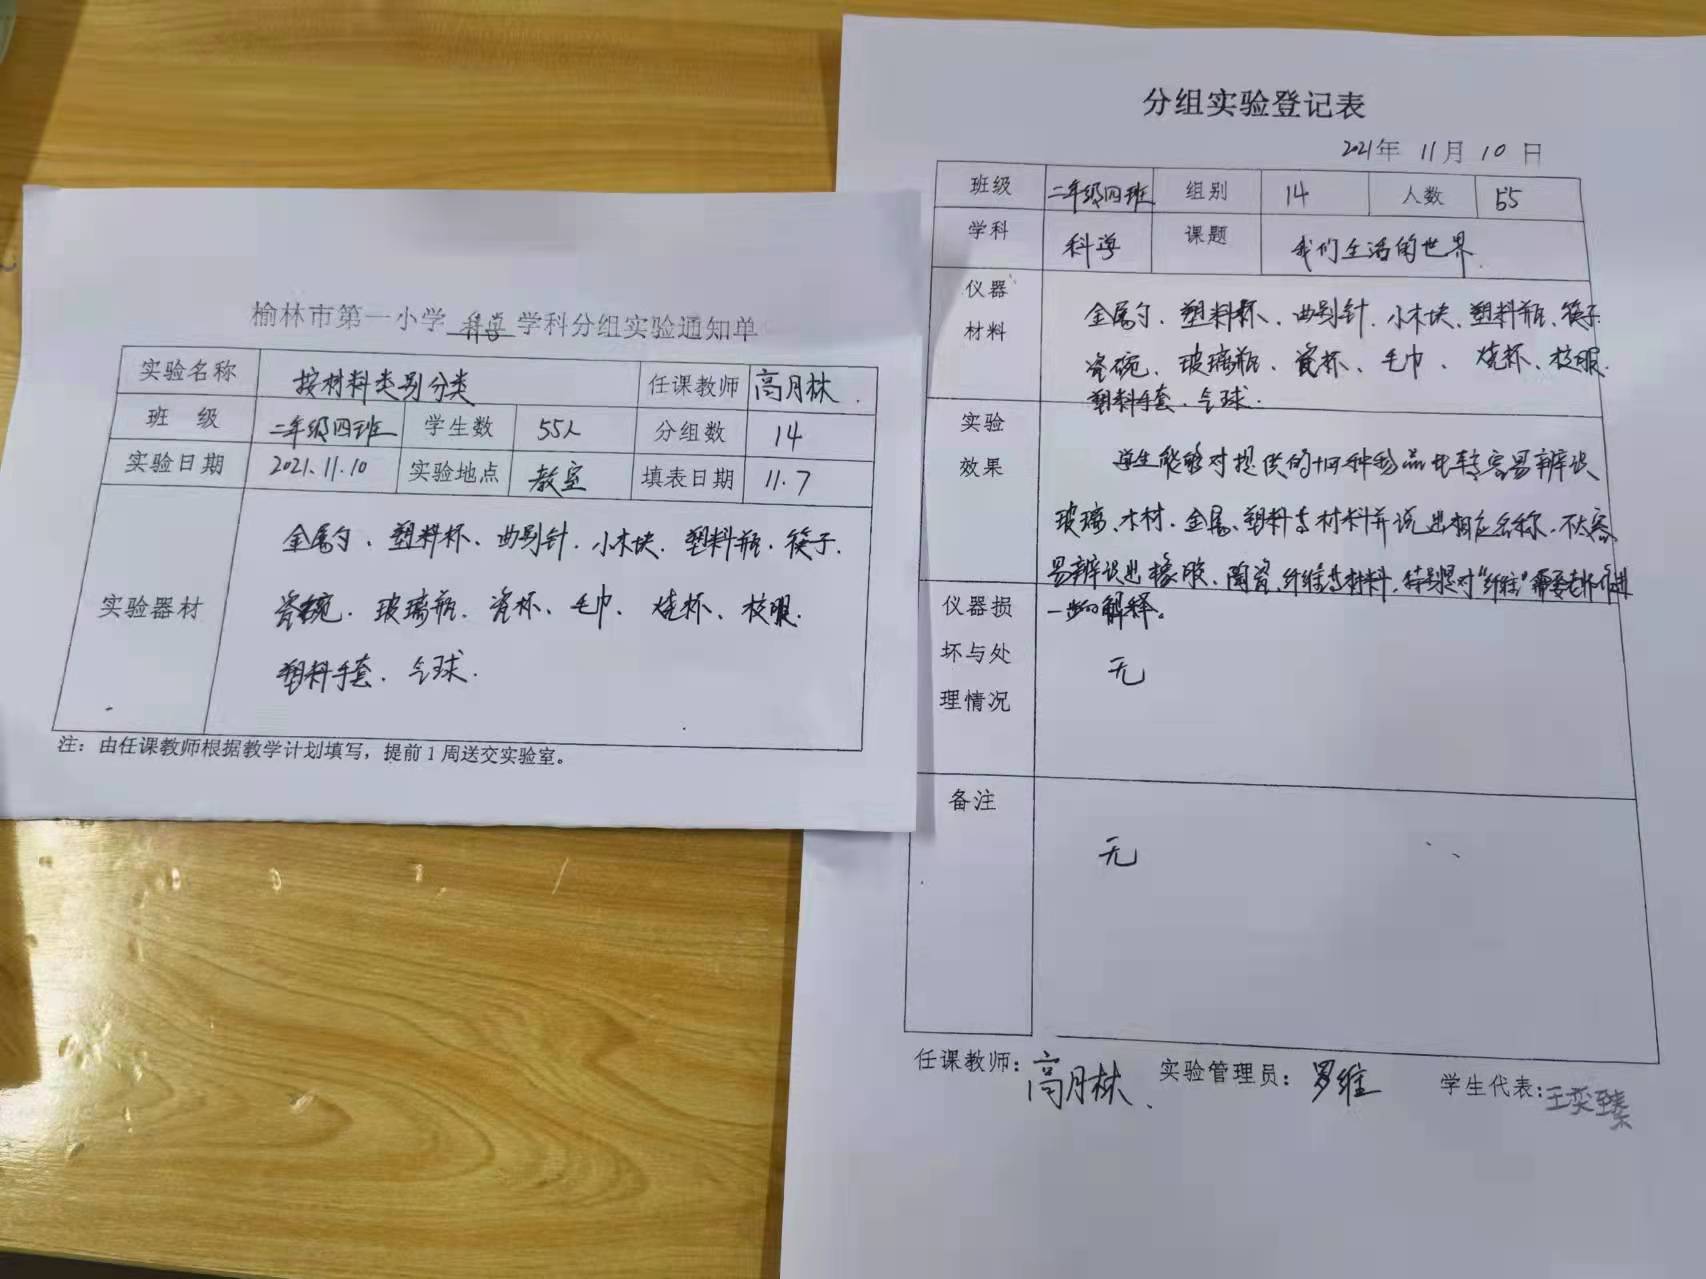 榆林市第一小学 科学 学科分组实验通知单
实验名称 按材料类别分类 任课教师 高月林.
班 级 二年级四班 学生数 55人 分组数 14
实验日期 2021.11.10 实验地点 教室 填表日期 11.7
实验器材
金属勺、塑料杯、曲别针、小木块、塑料瓶、筷子.
瓷碗、玻璃瓶、瓷杯、毛巾、烧杯、校服.
塑料手套、气球.
注：由任课教师根据教学计划填写，提前1周送交实验室。
分组实验登记表
2021年 11月 10日
班级 二年级四班 组别 14 人数 55
学科 科学 课题 我们生活的世界.
仪器
材料
金属勺、塑料杯、曲别针、小木块、塑料瓶、筷子.
瓷碗、玻璃瓶、瓷杯、毛巾、烧杯、校服.
塑料手套、气球.
实验
效果
学生能够对提供的十四种物品比较容易辨识
玻璃、木材、金属、塑料等材料并说出相应名称.不太容
易辨识出橡胶、陶瓷、纤维等材料，特别是对“纤维”需要老师作进
一步的解释。
仪器损
坏与处
理情况
无
备注
无
任课教师：高月林. 实验管理员：罗维 学生代表：王奕臻